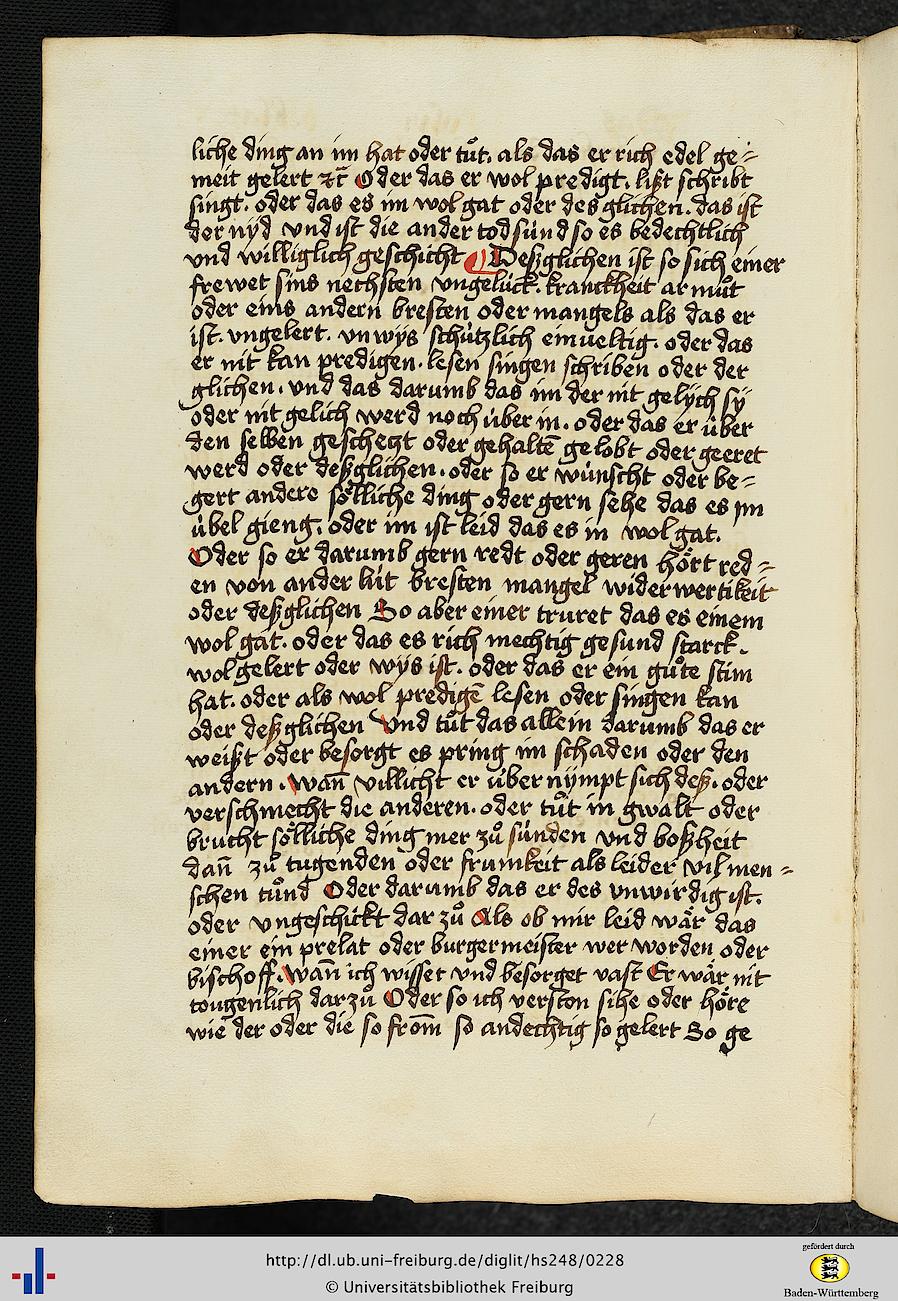 liche ding an im hat oder tuͦt. als das er rich edel ge-
meit gelert ⁊c̄ Oder das er wol predigt. lißt schribt
singt. oder das es im wol gat oder des glichen. das ist
der nyd vnd ist die ander todsünd so es bedechtlich
vnd williglich geschicht ¶ Deßglichen ist so sich einer
frewet sins nechsten vngelück. kranckheit armuͦt
oder eins andern bresten oder mangels als das er
ist. vngelert. vnwÿs schützlich einueltig. oder das
er nit kan predigen. lesen singen schriben oder der
glichen. vnd das darumb das im der nit gelÿch sÿ
oder nit gelich werd noch über in. oder das er über
den selben geschetzt oder gehaltē gelobt oder geeret
werd oder deßglichen. oder so er wünscht oder be-
gert andere soͤlliche ding oder gern sehe das es im
übel gieng. oder im ist leid das es in wol gat.
Oder so er darumb gern redt oder geren hoͤrt red-
en von ander lüt bresten mangel widerwertikeit
oder deßglichen So aber einer truret das es einem
wol gat. oder das es rich mechtig gesund starck.
wol gelert oder wÿs ist. oder das er ein guͦte stim
hat. oder als wol predigē lesen oder singen kan
oder deßglichen Vnd tuͦt das allein darumb das er
weißt oder besorgt es pring im schaden oder den
andern. Wañ villicht er über nÿmpt sich deß. oder
verschmecht die anderen. oder tuͦt in gwalt oder
brucht soͤlliche ding mer zuͦ sünden vnd boßheit
dañ zuͦ tugenden oder frumkeit als leider vil men-
schen tuͦnd Oder darumb das er des vnwirdig ist.
oder vngeschickt dar zuͦ Als ob mir leid waͤr das
einer ein prelat oder burgermeister wer worden oder
bischoff. Wañ ich wisset vnd besorget vast Er waͤr nit
tougenlich dar zuͦ Oder so ich verston sihe oder hoͤre
wie der oder die so from̄ so andechtig so gelert So ge
http://dl.ub.uni-freiburg.de/diglit/hs248/0228
© Universitätsbibliothek Freiburg
gefördert durch
Baden-Württemberg